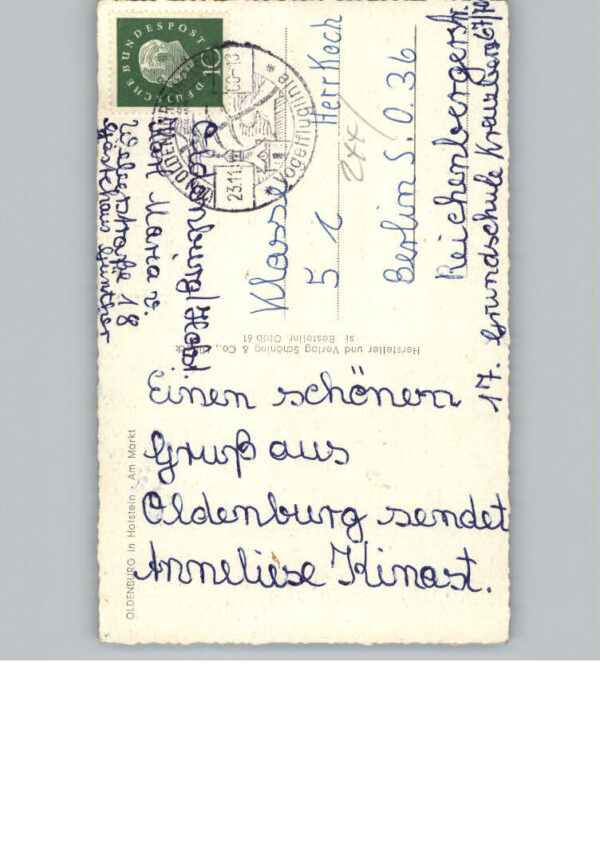 Einen schönen
Gruß aus
Oldenburg sendet
Anneliese Kinast.
Klasse Herr Koch
5 1
Berlin S.O. 36
Reichenbergerstr.
17. Grundschule Kreuzberg 67/70
Oldenburg/Holst.
Maria v.
Weberstraße 18
Gasthaus Günther
DEUTSCHE BUNDESPOST
10
23.11
* Vogelfluglinie *
Hersteller und Verlag Schöning & Co.,
Bestellnr. Oldb 61
OLDENBURG in Holstein - Am Markt